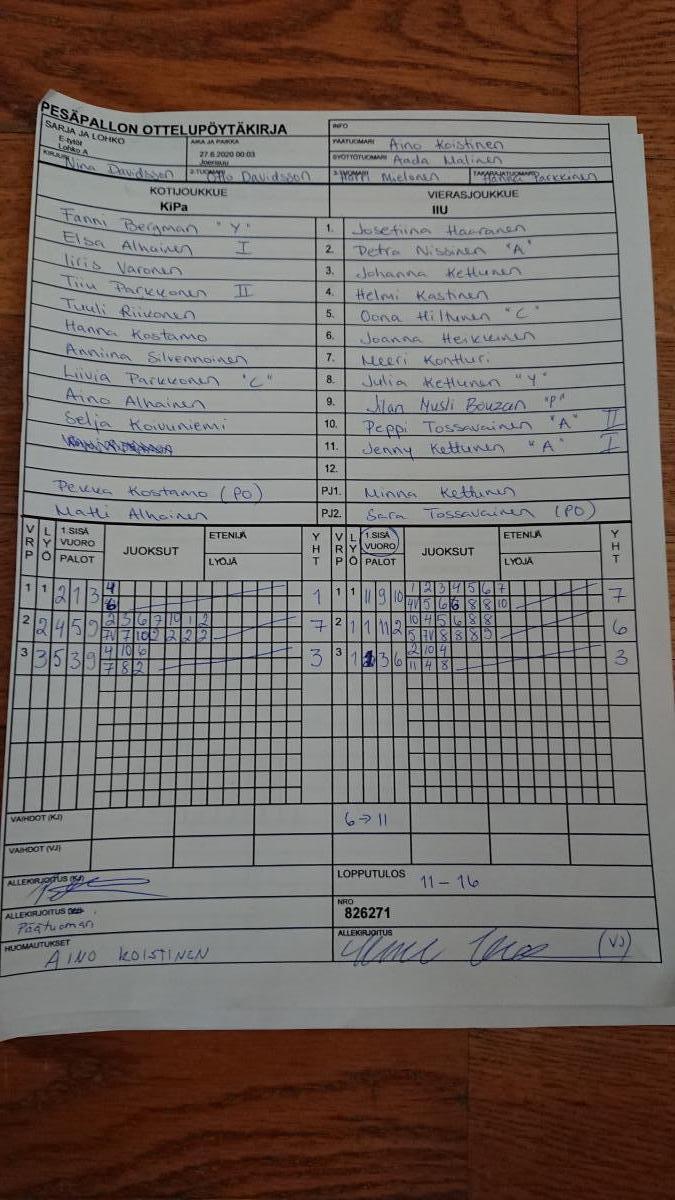 PESÄPALLON OTTELUPÖYTÄKIRJA
INFO
SARJA JA LOHKO
E-tytöt
Lohko A
AIKA JA PAIKKA
27.6.2020 00:03
Joensuu
PÄÄTUOMARI Aino Koistinen
SYÖTTÖTUOMARI Aada Malinen
KIRJURI Nina Davidsson
2-TUOMARI Otto Davidsson
3-TUOMARI Harri Mielonen
TAKARAJATUOMARI Hanna Parkkinen
KOTIJOUKKUE
KiPa
VIERASJOUKKUE
IIU
Fanni Bergman "Y" 1. Josefiina Haaranen
Elsa Alhainen I 2. Petra Nissinen "A"
Iiris Varonen 3. Johanna Kettunen
Tiiu Parkkonen II 4. Helmi Kastinen
Tuuli Riikonen 5. Oona Hiltunen "C"
Hanna Kostamo 6. Joanna Heikkinen
Anniina Silvennoinen 7. Meeri Kontturi
Liivia Parkkonen "C" 8. Julia Kettunen "Y"
Aino Alhainen 9. Jilan Musli Bouzan "P"
Selja Koivuniemi 10. Peppi Tossavainen "A" II
11. Jenny Kettunen "A" I
12.
Pekka Kostamo (PO) PJ1. Minna Kettunen
Matti Alhainen PJ2. Sara Tossavainen (PO)
VRP LYÖ 1.SISÄ VUORO PALOT JUOKSUT ETENIJÄ LYÖJÄ YHT VRP LYÖ 1.SISÄ VUORO PALOT JUOKSUT ETENIJÄ LYÖJÄ YHT
1 1 2 1 3 4 1 1 1 11 9 10 1 2 3 4 5 6 7 7
6 4V 5 6 6 8 8 10
2 2 4 5 9 2 3 6 7 10 1 2 7 2 1 1 11 2 10 4 5 6 8 8 6
7V 7 10 2 2 2 2 5 7V 8 8 8 9
3 3 5 3 9 4 10 6 3 3 1 3 6 2 10 4 3
7 8 2 11 4 8
VAIHDOT (KJ) 6→11
VAIHDOT (VJ)
ALLEKIRJOITUS (KJ)
LOPPUTULOS 11-16
ALLEKIRJOITUS
Päätuomari
NRO
826271
HUOMAUTUKSET
AINO KOISTINEN
ALLEKIRJOITUS
(VJ)